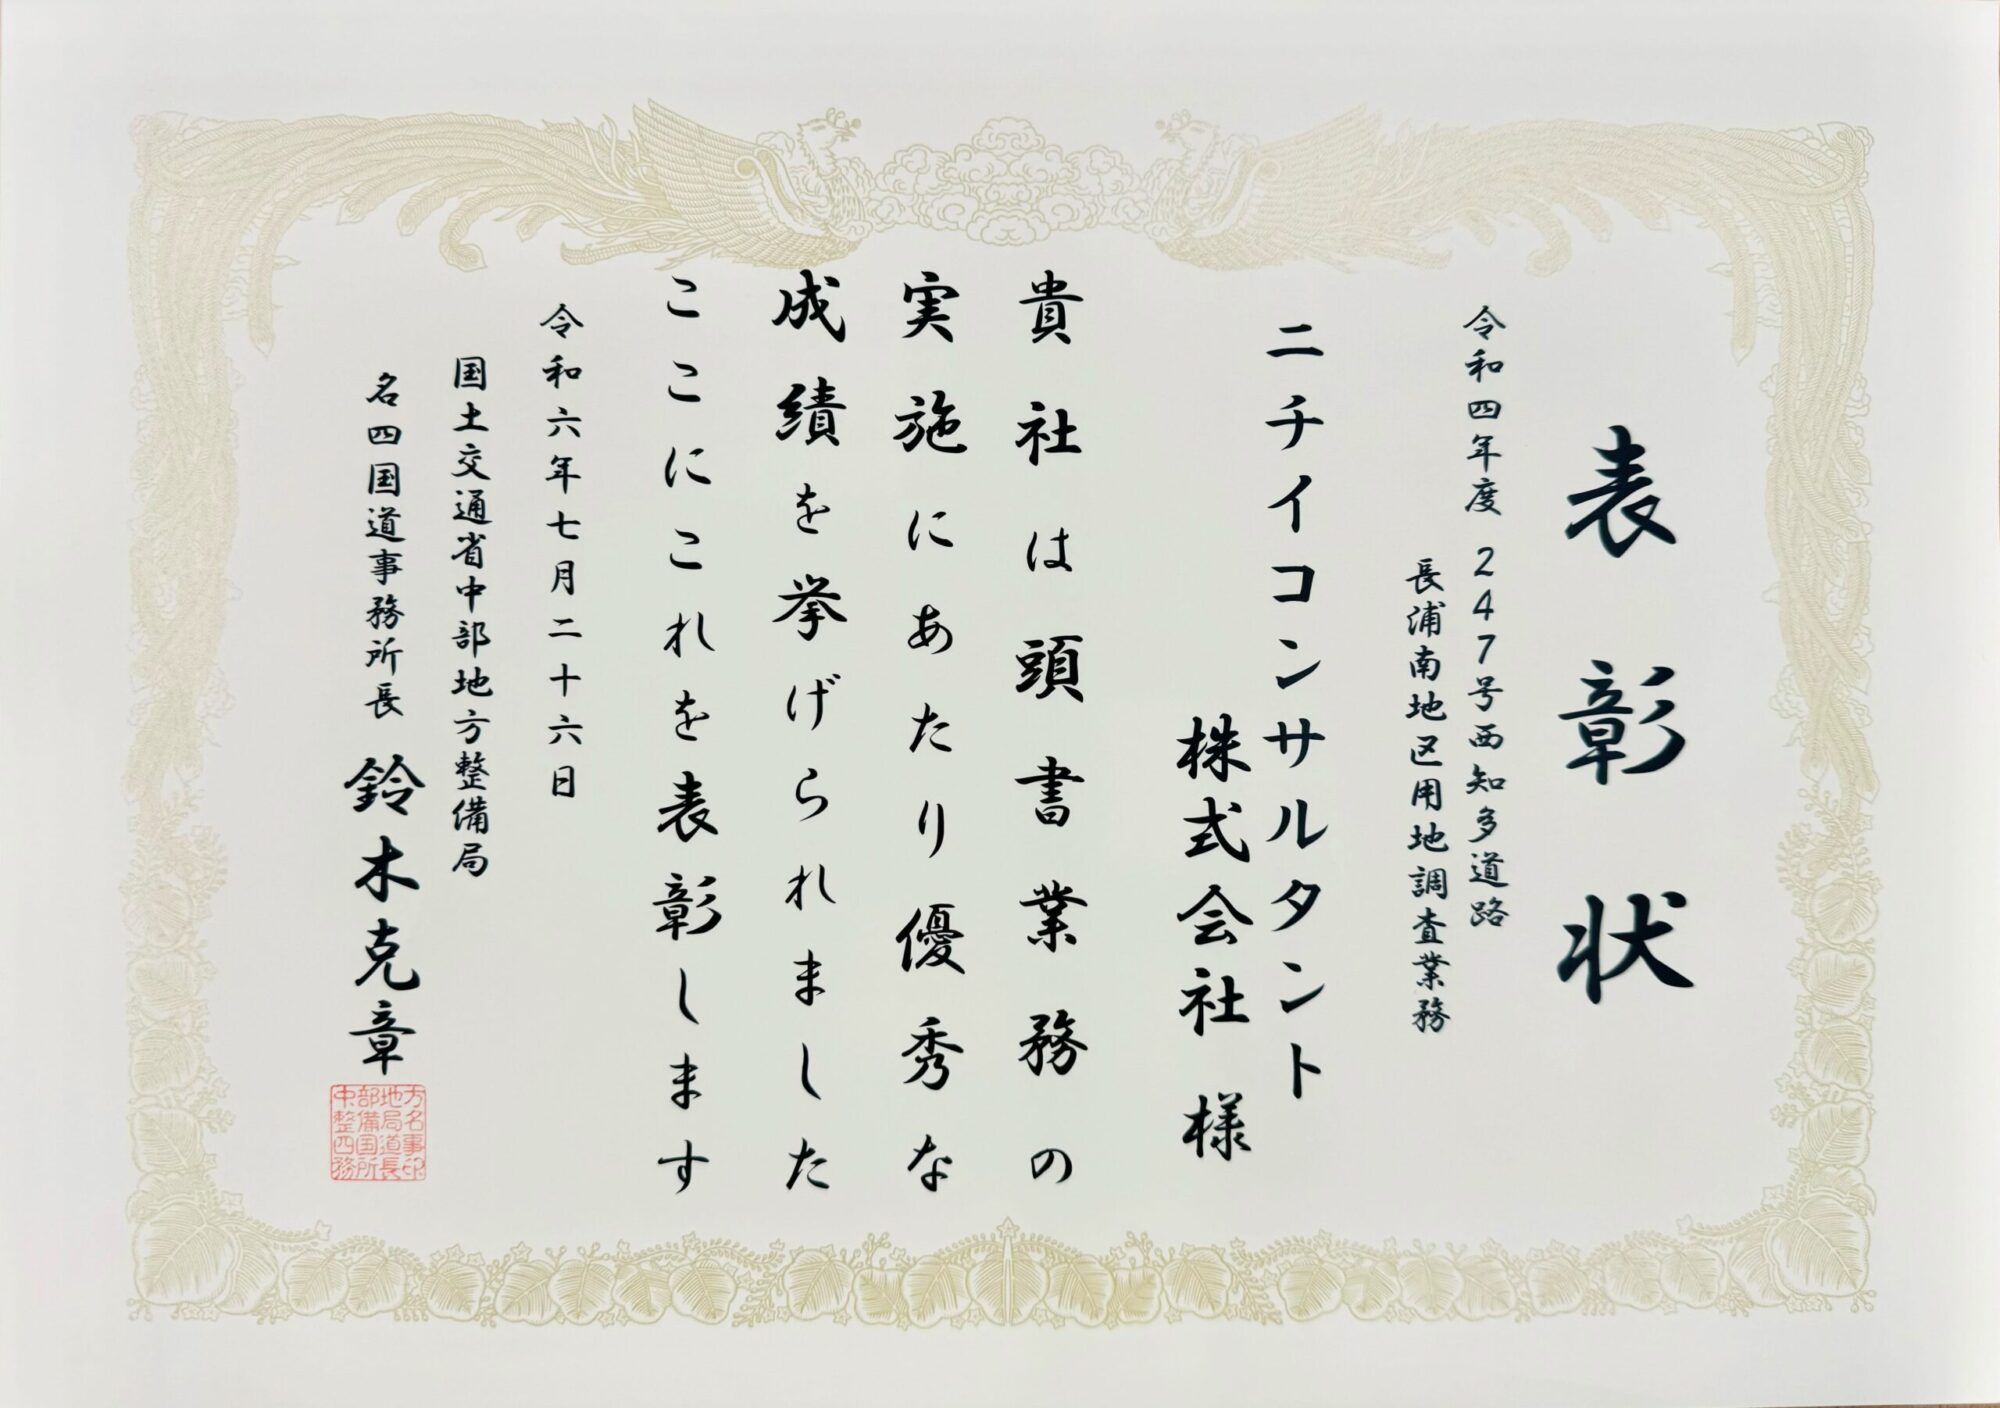 表彰状
令和四年度 247号西知多道路
長浦南地区用地調査業務
ニチイコンサルタント
株式会社 様
貴社は頭書業務の
実施にあたり優秀な
成績を挙げられました
ここにこれを表彰します
令和六年七月二十六日
国土交通省中部地方整備局
名四国道事務所長 鈴木克章
中部地方
整備局名
四国道事
務所長印